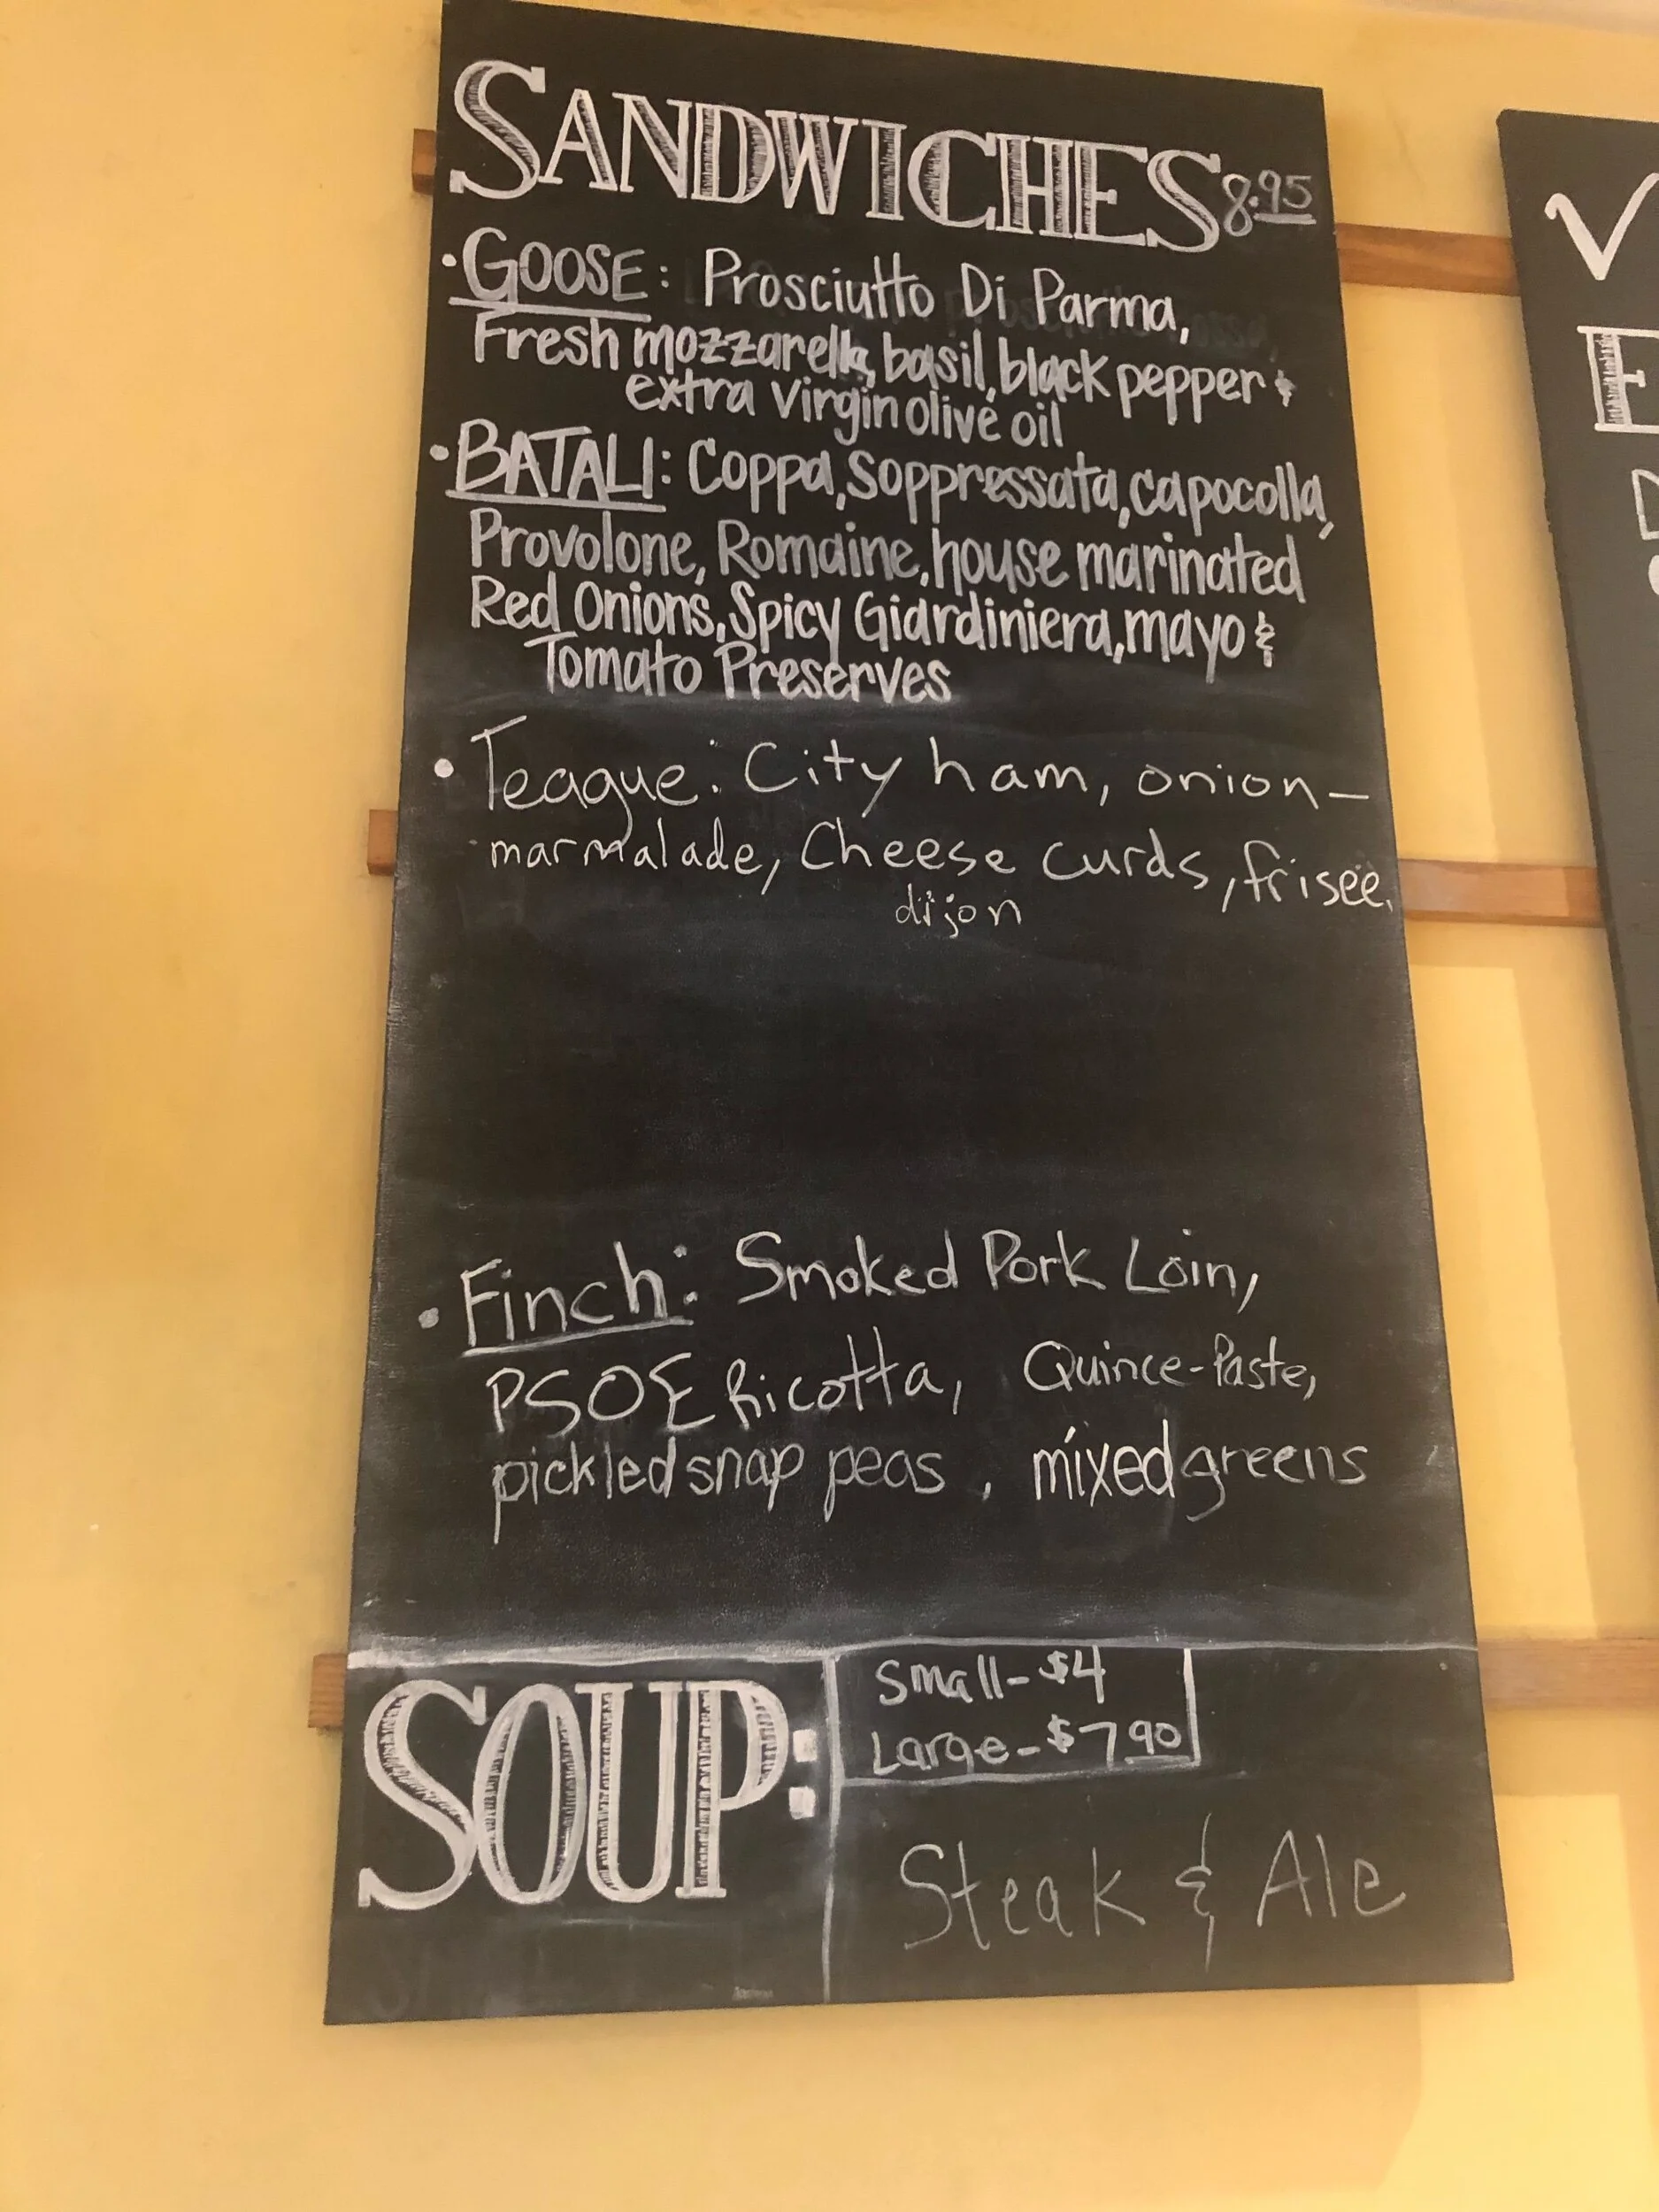 SANDWICHES 8.95
• GOOSE: Prosciutto Di Parma,
Fresh mozzarella, basil, black pepper &
extra virgin olive oil
• BATALI: Coppa, Soppressata, capocolla,
Provolone, Romaine, house marinated
Red Onions, Spicy Giardiniera, mayo &
Tomato Preserves
• Teague: City ham, onion-
marmalade, Cheese curds, frisée,
dijon
• Finch: Smoked Pork Loin,
PSOE Ricotta, Quince-Paste,
pickled snap peas, mixed greens
SOUP:
Small - $4
Large - $7.90
Steak & Ale